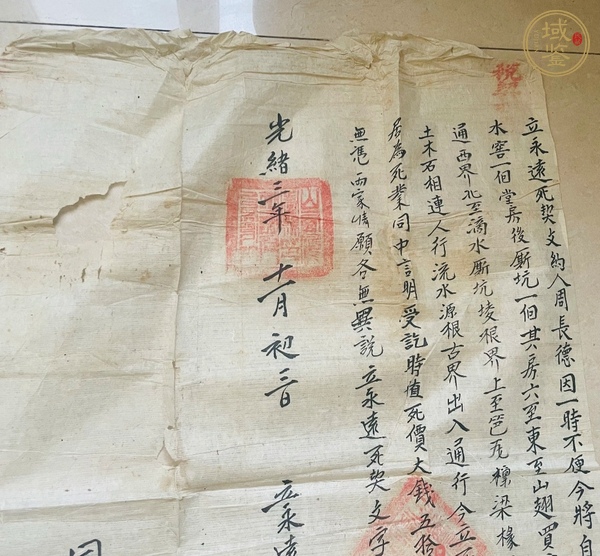 立永遠死契文約人周長德因一時不便今將自
水窖一個堂房後厮坑一個其房六至東至山翅買
通西界北至滴水厮坑堎根界上至笆瓦檁梁椽
土木石相連人行流水源根古界出入通行今立
居為死業同中言明受訖時值死價大錢五拾
無憑两家情願各無異說立永遠死契文字
光緒三年 十一月初三日 立永遠
同
税
域鉴